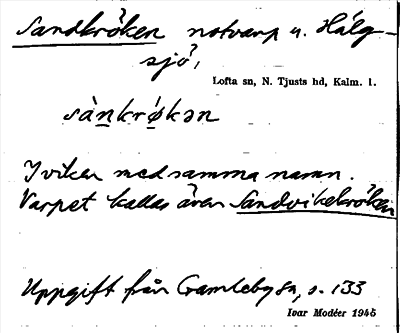 Sandkröken notvarp u. Hälg-
sjö,
Lofta sn, N. Tjusts hd, Kalm. l.
sànkrø̀kən
I viken med samma namn.
Varpet kallas även Sandvikekröken
Uppgift från Gamleby sn, s. 133
Ivar Modéer 1945